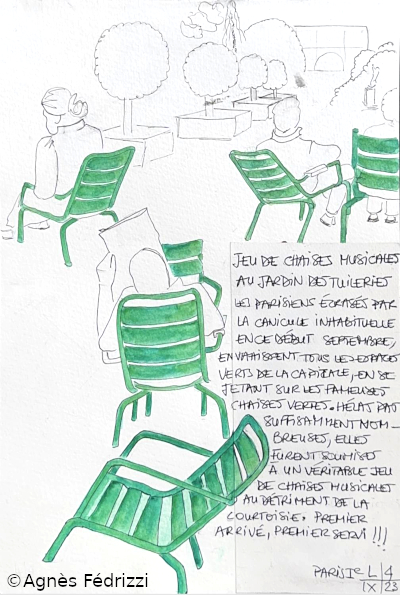 JEU DE CHAISES MUSICALES
AU JARDIN DES TUILERIES
LES PARISIENS ÉCRASÉS PAR
LA CANICULE INHABITUELLE
EN CE DÉBUT SEPTEMBRE,
ENVAHISSENT TOUS LES ESPACES
VERTS DE LA CAPITALE, EN SE
JETANT SUR LES FAMEUSES
CHAISES VERTES. HÉLAS PAS
SUFFISAMMENT NOM-
BREUSES, ELLES
FURENT SOUMISES
À UN VÉRITABLE JEU
DE CHAISES MUSICALES
AU DÉTRIMENT DE LA
COURTOISIE. PREMIER
ARRIVÉ, PREMIER SERVI !!!
PARIS LE L 4
IX 23
©Agnès Fédrizzi